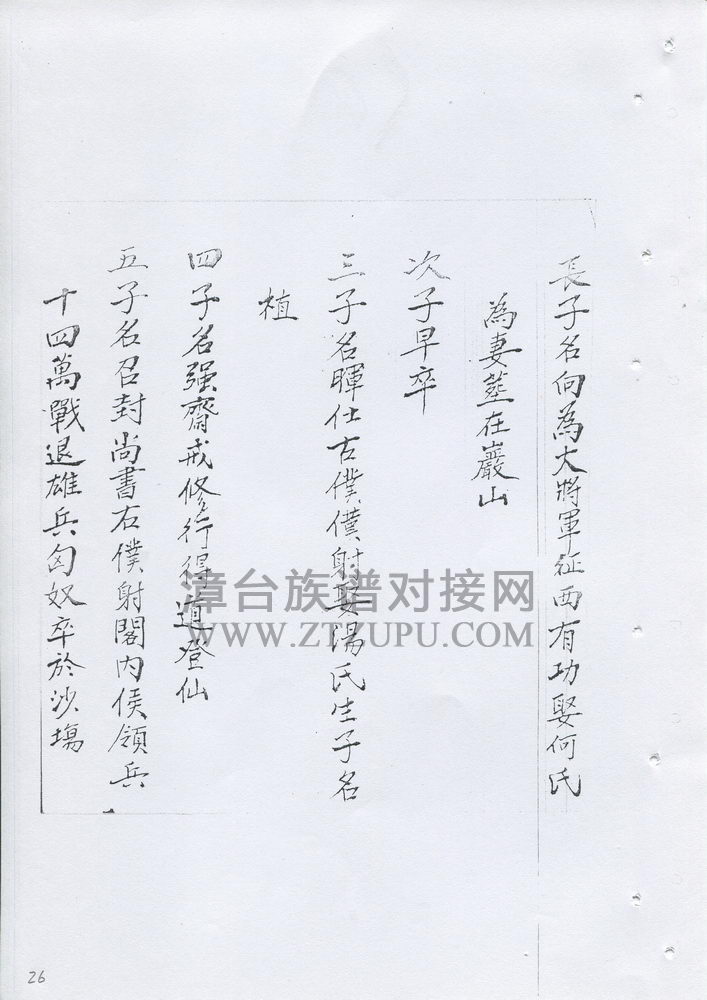 長子名向為大將軍征西有功娶何氏
為妻塟在巖山
次子早卒
三子名暉仕古僕僕射娶湯氏生子名
植
四子名强齋戒修行得道登仙
五子名召封尚書右僕射閣内侯領兵
十四萬戰退雄兵匈奴卒於沙塲
漳台族谱对接网
WWW.ZTZUPU.COM
26